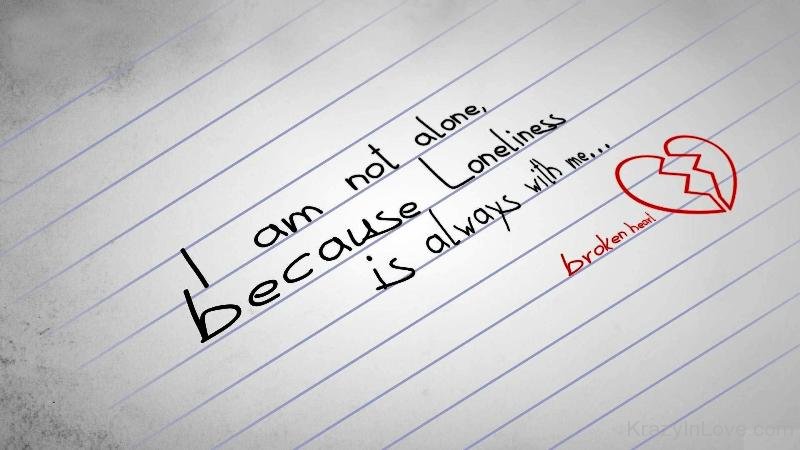 I am not alone,
because Loneliness
is always with me...
broken heart
KrazyInLove.com